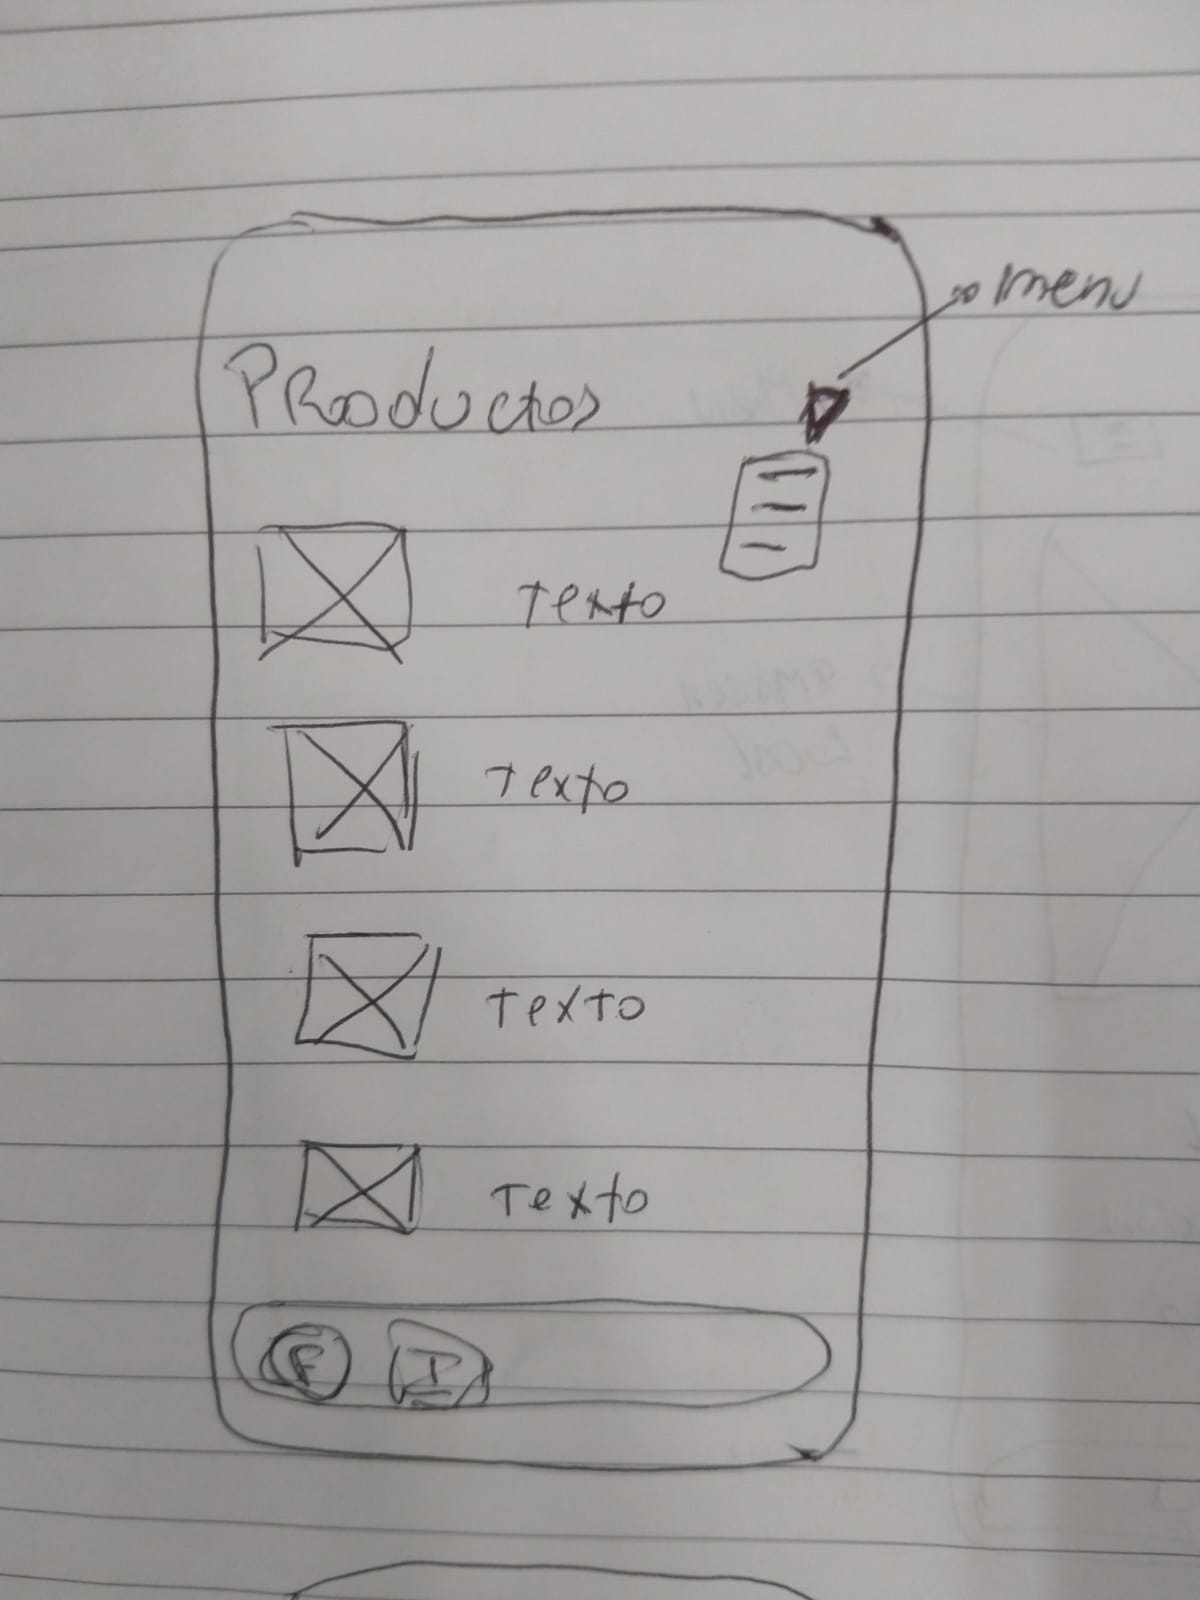 menu
PRoductos
Texto
Texto
TexTo
Texto
F I